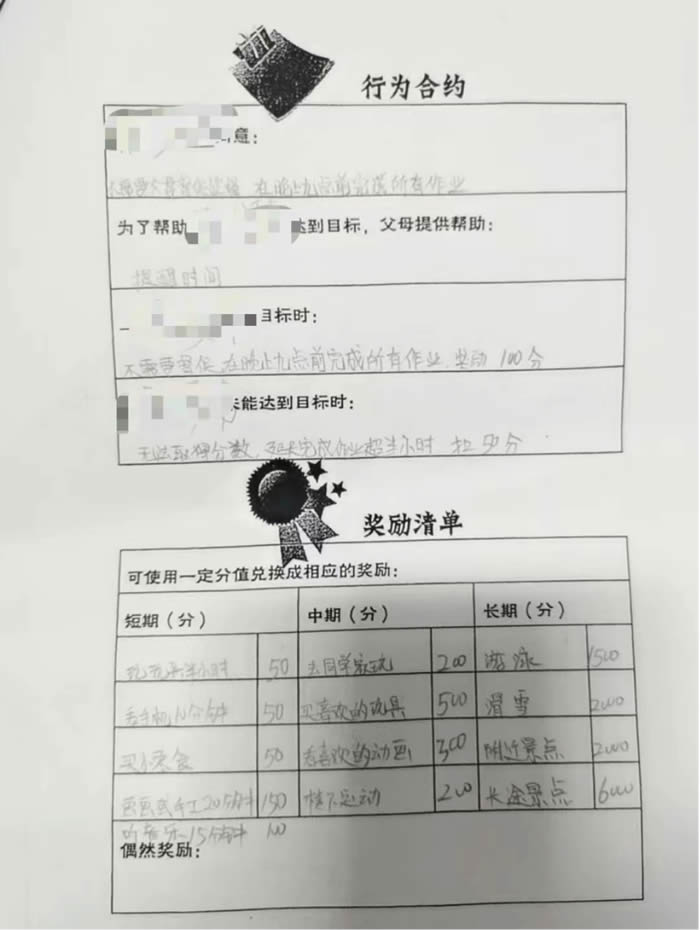 行为合约
意:
在晚上九点前完成所有作业
为了帮助 达到目标，父母提供帮助:
提醒时间
目标时:
不需要督促 在晚上九点前完成所有作业, 奖励 100分
未能达到目标时:
无法取得分数, 完成作业超半小时 扣50分
奖励清单
可使用一定分值兑换成相应的奖励:
短期（分） 中期（分） 长期（分）
玩玩具半小时 50 去同学家玩 200 游泳 1500
看手机10分钟 50 买喜欢的玩具 500 滑雪 2000
买小零食 50 看喜欢的动画 300 附近景点 2000
画画或手工20分钟 150 楼下运动 200 长途景点 6000
听音乐15分钟 100
偶然奖励: